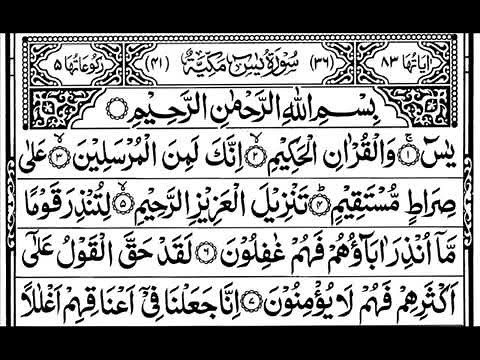 اٰيَاتُهَا ٨٣ (٣٦) سُوْرَةُ يٰسٓ مَكِّيَّةٌ (٤١) رُكُوْعَاتُهَا ٥
بِسْمِ اللّٰهِ الرَّحْمٰنِ الرَّحِيْمِ
يٰسٓ ۚ ١ وَالْقُرْاٰنِ الْحَكِيْمِ ۙ ٢ اِنَّكَ لَمِنَ الْمُرْسَلِيْنَ ۙ ٣ عَلٰى
صِرَاطٍ مُّسْتَقِيْمٍ ؕ ٤ تَنْزِيْلَ الْعَزِيْزِ الرَّحِيْمِ ۙ ٥ لِتُنْذِرَ قَوْمًا
مَّاۤ اُنْذِرَ اٰبَآؤُهُمْ فَهُمْ غٰفِلُوْنَ ٦ لَقَدْ حَقَّ الْقَوْلُ عَلٰۤى
اَكْثَرِهِمْ فَهُمْ لَا يُؤْمِنُوْنَ ٧ اِنَّا جَعَلْنَا فِيْۤ اَعْنَاقِهِمْ اَغْلٰلًا